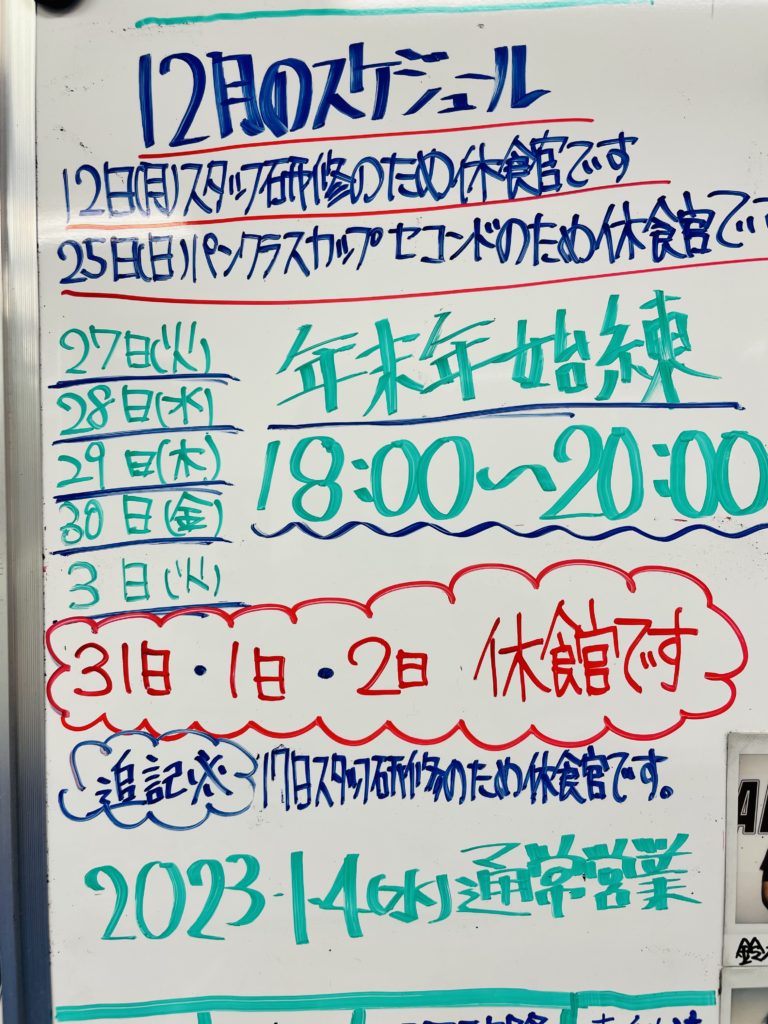 12月のスケジュール
12日(月)スタッフ研修のため休館です
25日(日)パンクラスカップセコンドのため休館で
27日(火)
28日(水)
29日(木)
30日(金)
3日(火)
年末年始練
18:00〜20:00
31日・1日・2日 休館です
追記※ 17日スタッフ研修のため休館です。
2023.1.4(水)通常営業
鈴